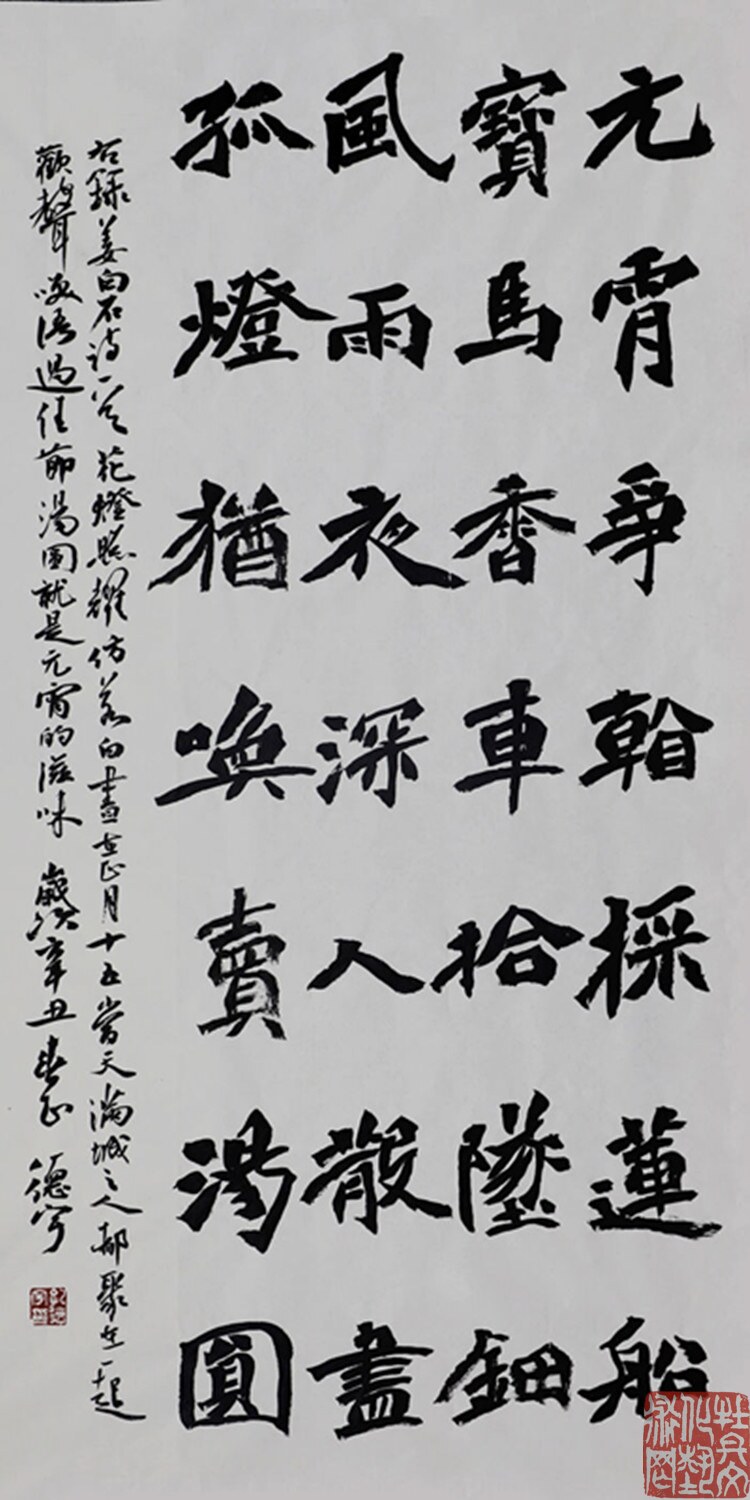 元霄爭看採蓮船
寶馬香車拾墜鈿
風雨夜深人散盡
孤燈猶喚賣湯圓
右錄姜白石詩一首花燈照耀仿若白晝在正月十五當天滿城之人都聚在一起
歡聲咲語過佳節湯圓就是元霄的滋味 歲次辛丑春正 德宁
牡丹文
化藝
術网